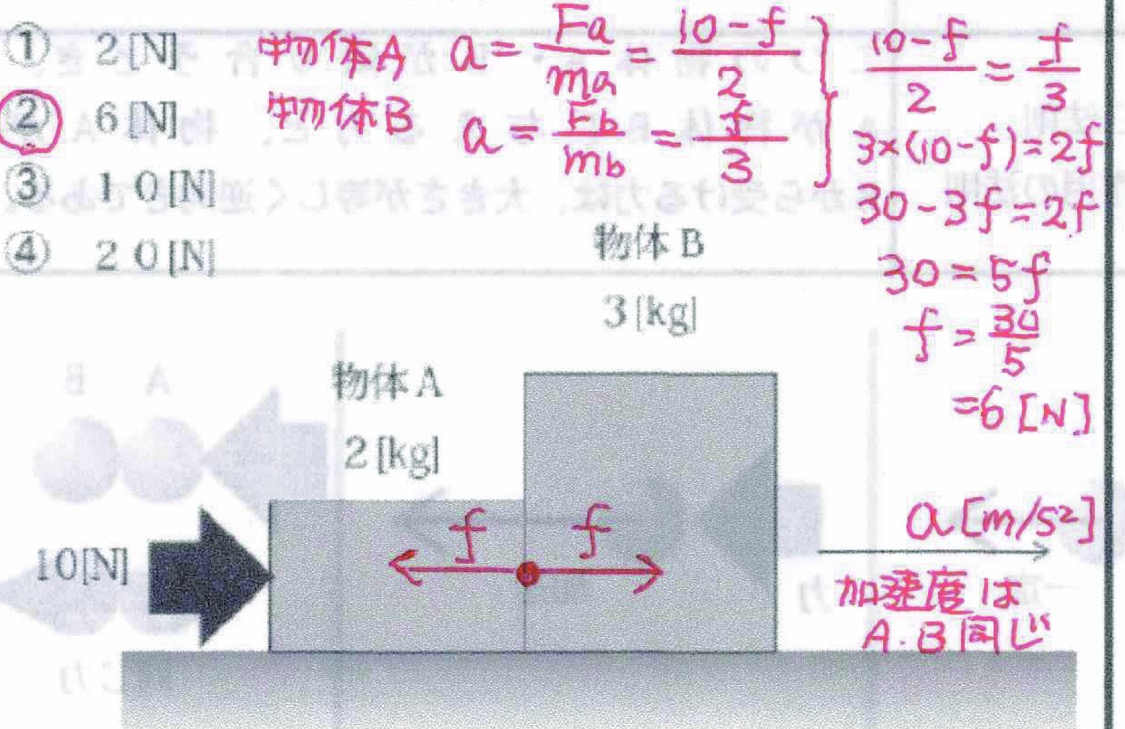 ① 2[N]
② 6[N]
③ 10[N]
④ 20[N]
物体A a = Fa/ma = (10-f)/2
物体B a = Fb/mb = f/3
(10-f)/2 = f/3
3×(10-f)=2f
30-3f=2f
30=5f
f=30/5
=6[N]
から受ける力は、大きさが等しく逆
物体B
3[kg]
物体A
2[kg]
10[N]
f f
a[m/s²]
加速度は
A.B同じ